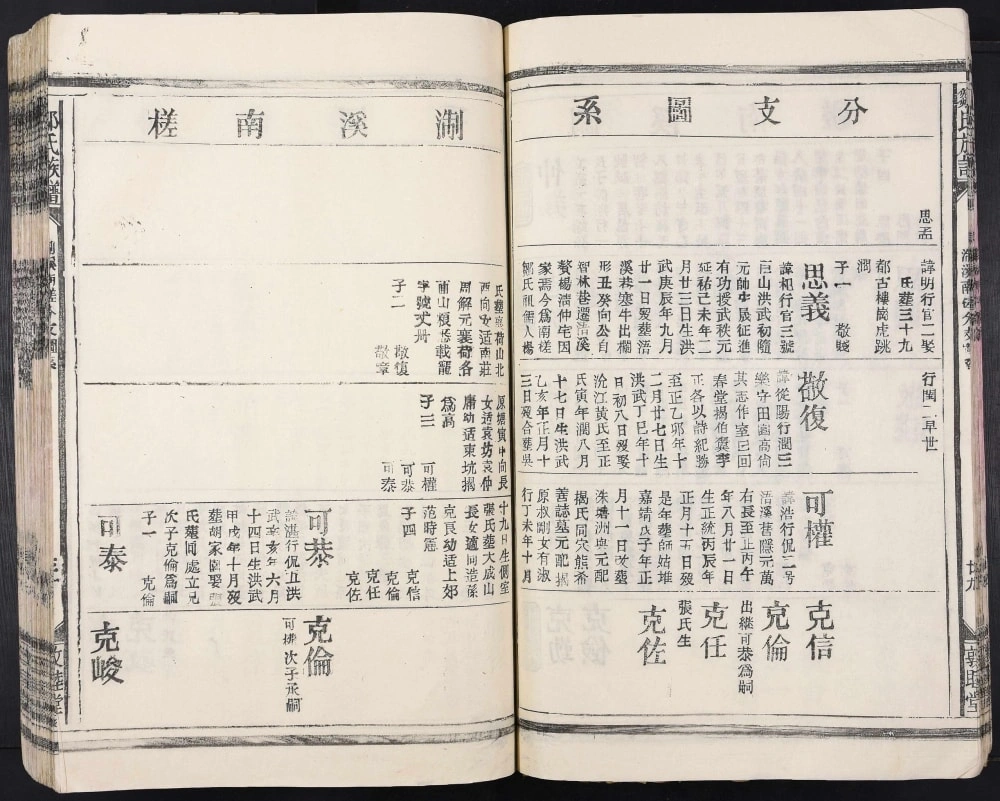 分支圖系
思孟
諱明行官二娶
氏葬三十九
都古樓崗虎跳
澗
子一 敬賤
思義
諱杞行官三號
巨山洪武初隨
元帥土晟征進
有功授武秩元
延祐己未年二
月廿三日生洪
武庚辰年九月
廿一日歿葬浯
溪巷塞牛出欄
形丑癸向公自
智林巷遷浯溪
贅楊濡仲宅因
家焉今爲南槎
鄒氏祖儒人楊
行閏一早世
敬復
諱從陽行澗三
樂守田園高尙
其志作室曰回
春堂揭伯奚李
正各以詩紀勝
至正乙卯年十
二月廿七日生
洪武丁巳年十
日初八日歿娶
沇江黃氏至正
壬寅年潤八月
十七日生洪武
乙亥年正月十
三日歿合葬吳
可權
諱浩行侃二号
浯溪舊隱元萬
右長至正丙午
年八月廿一日
生正統丙辰年
正月十五日歿
是年葬師姑堆
嘉靖戊子年正
月十一日改葬
洙塘洲與元配
揭氏同穴熊希
善誌墓元配揭
原叔剛女有淑
行丁未年十月
克信
克倫
出繼可恭爲嗣
克任
張氏生
克佐
湖溪南槎
氏葬褒荷山北
西向女适南莊
周解元襄荷各
甫山稷恭載寵
字號丈冊
子二 敬復
敬章
原塘寅申向長
女适袁坊袁仲
庸幼适東坑揭
爲高
子三 可權
可恭
可泰
十九日生側室
張氏葬大慼山
長女适同造孫
克良幼适上郊
范時憲
子四 克信
克倫
克任
克佐
可恭
諱湛行侃五洪
武辛亥年六月
十四日生洪武
甲戌年十月歿
葬胡家園娶張
氏葬同處立兄
次子克倫爲嗣
子一 克倫
可泰
克倫
可權次子承嗣
克峻
鄒氏族譜
敦睦堂